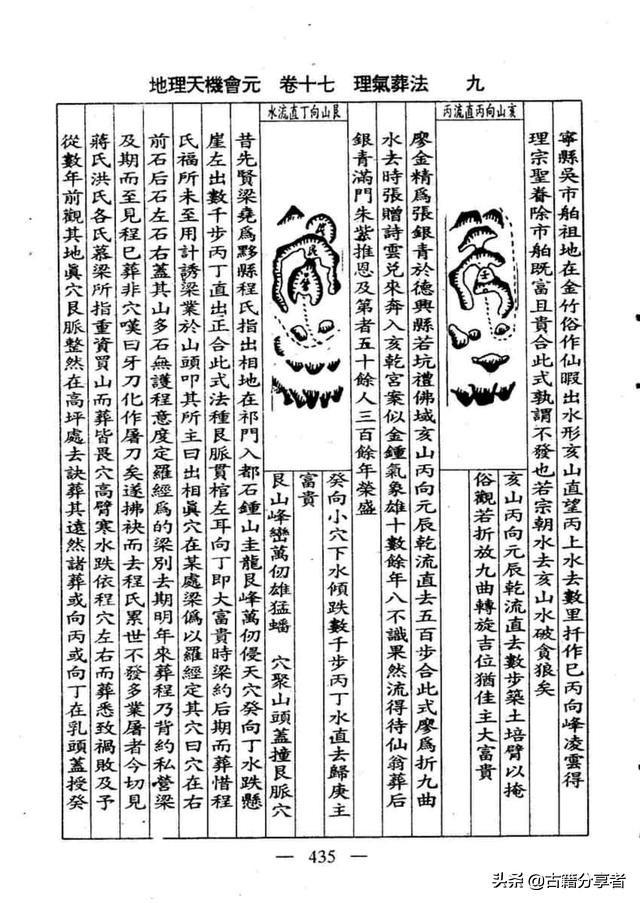 地理天機會元　卷十七　理氣葬法　九
寧縣吳市舶祖地在金竹俗作仙暇出水形亥山直望丙上水去數里扦作巳丙向峰凌雲得
理宗聖眷除市舶既富且貴合此式孰謂不發也若宗朝水去亥山水破貪狼矣
亥山丙向丙直流
亥山丙向元辰乾流直去數步築土培臂以掩
俗觀若折放九曲轉旋吉位猶佳主大富貴
廖金精爲張銀青於德興縣若坑禮佛域亥山丙向元辰乾流直去五百步合此式廖爲折九曲
水去時張贈詩雲兌來奔入亥乾宮案似金鍾氣象雄十數餘年八不識果然流得待仙翁葬後
銀青滿門朱紫推恩及第者五十餘人三百餘年榮盛
艮山向丁直流水
艮
艮
癸向小穴下水傾跌數千步丙丁水直去歸庚主
富貴
艮山峰巒萬仞雄猛蟠　穴聚山頭蓋撞艮脈穴
昔先賢梁堯爲黟縣程氏指出相地在祁門入都石鍾山圭龍艮峰萬仞侵天穴癸向丁水跌懸
崖左出數千步丙丁直出正合此式法種艮脈貫棺左耳向丁即大富貴時梁約後期而葬惜程
氏福所未至用計誘梁業於山頭叩其所主曰出相眞穴在某處梁僞以羅經定其穴曰穴在右
前石后石左石右蓋其山多石無護程意度定羅經爲的梁別去期明年來葬程乃背約私營梁
及期而至見程巳葬非穴嘆曰牙刀化作屠刀矣遂拂袂而去程氏累世不發多業屠者今切見
蔣氏洪氏各氏慕梁所指重資買山而葬皆畏穴高臂寒水跌依程穴左右而葬悉致禍敗及予
從數年前觀其地眞穴艮脈整然在高坪處去訣葬其遠然諸葬或向丙或向丁在乳頭蓋授癸
— 435 —
头条@古籍分享者